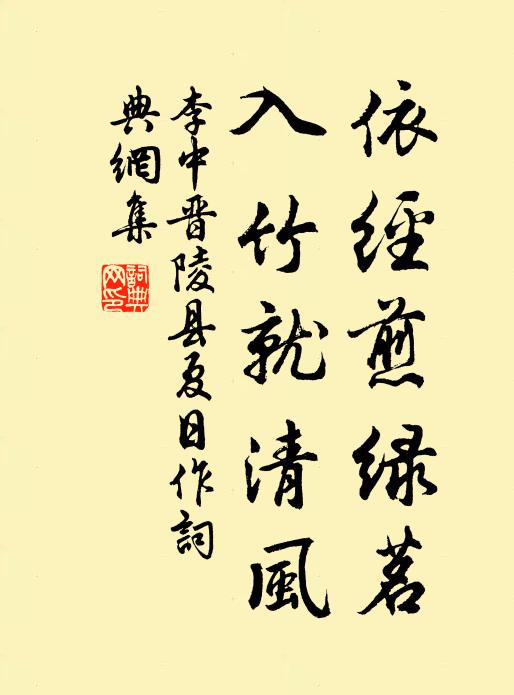 依經煎绿茗
入竹就清風
李中晋陵县夏日作詞
典網集
詞典
网印